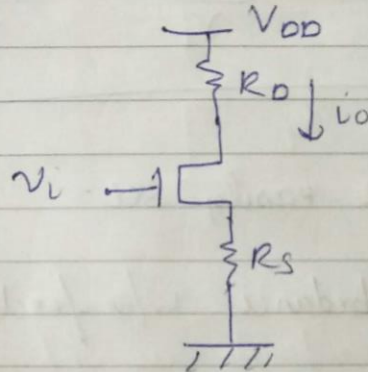 VDD
RD
io
vi
RS